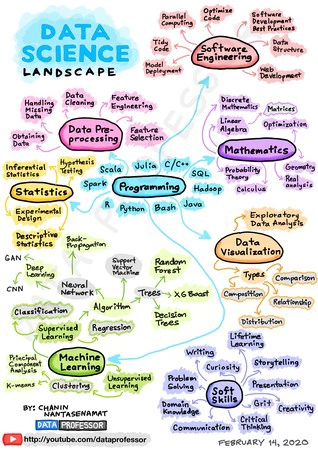 DATA
SCIENCE
LANDSCAPE
Parallel
Computing
Optimize
Code
Software
Development
Best Practices
Tidy
Code
Data
Structure
Model
Deployment
Web
Development
Software
Engineering
Handling
Missing
Data
Data
Cleaning
Feature
Engineering
Obtaining
Data
Feature
Selection
Data Pre-
processing
Discrete
Mathematics
Matrices
Linear
Algebra
Optimization
Mathematics
Probability
Theory
Calculus
Geometry
Real
analysis
Inferential
Statistics
Hypothesis
Testing
Statistics
Experimental
Design
Descriptive
Statistics
Scala
Julia
C/C++
SQL
Spark
Programming
Hadoop
R
Python
Bash
Java
Exploratory
Data Analysis
Data
Visualization
Types
Comparison
Composition
Relationship
Distribution
Back-
Propagation
GAN
Deep
Learning
CNN
Neural
Network
Support
Vector
Machine
Random
Forest
Trees
XG Boost
Decision
Trees
Algorithm
Classification
Supervised
Learning
Regression
Machine
Learning
Principal
Component
Analysis
K-means
Clustering
Unsupervised
Learning
Lifetime
Learning
Writing
Curiosity
Storytelling
Problem
Solving
Presentation
Soft
Skills
Domain
Knowledge
Grit
Creativity
Communication
Critical
Thinking
BY: CHANIN
NANTASENAMAT
DATA PROFESSOR
http://youtube.com/dataprofessor
FEBRUARY 14, 2020